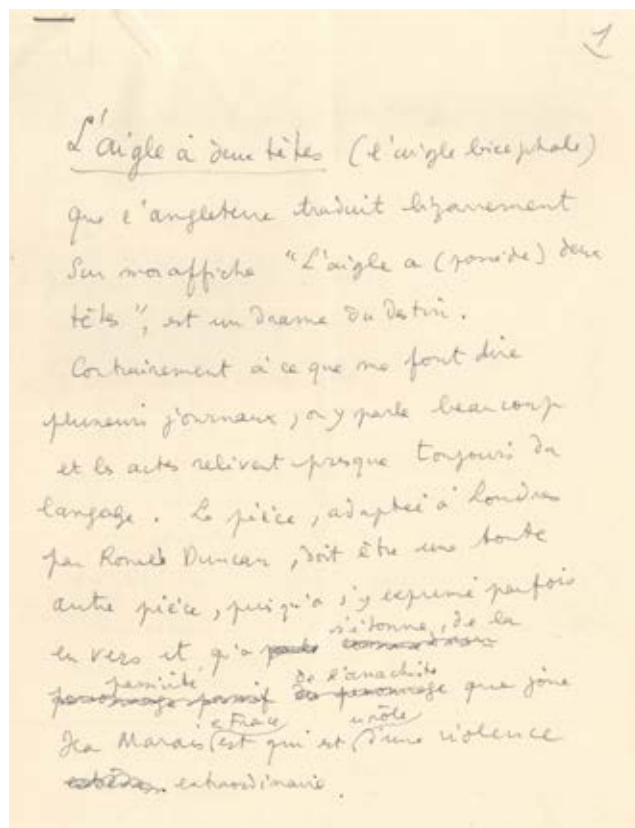 1
L'aigle à deux têtes (l'aigle bicéphale)
que l'angleterre traduit bizarrement
sur mon affiche "L'aigle a (possède) deux
têtes", est un drame du destin.
Contrairement à ce que me font dire
plusieurs journaux, on y parle beaucoup
et les actes relèvent presque toujours du
langage. La pièce, adaptée à Londres
par Ronald Duncan, doit être une toute
autre pièce, puisqu'on s'y exprime parfois
s'étonne, de la
en vers et qu'on
passivité de l'anarchiste
personnage passif du personnage que joue
en France un rôle
Jean Marais est qui est d'une violence
extraordinaire.